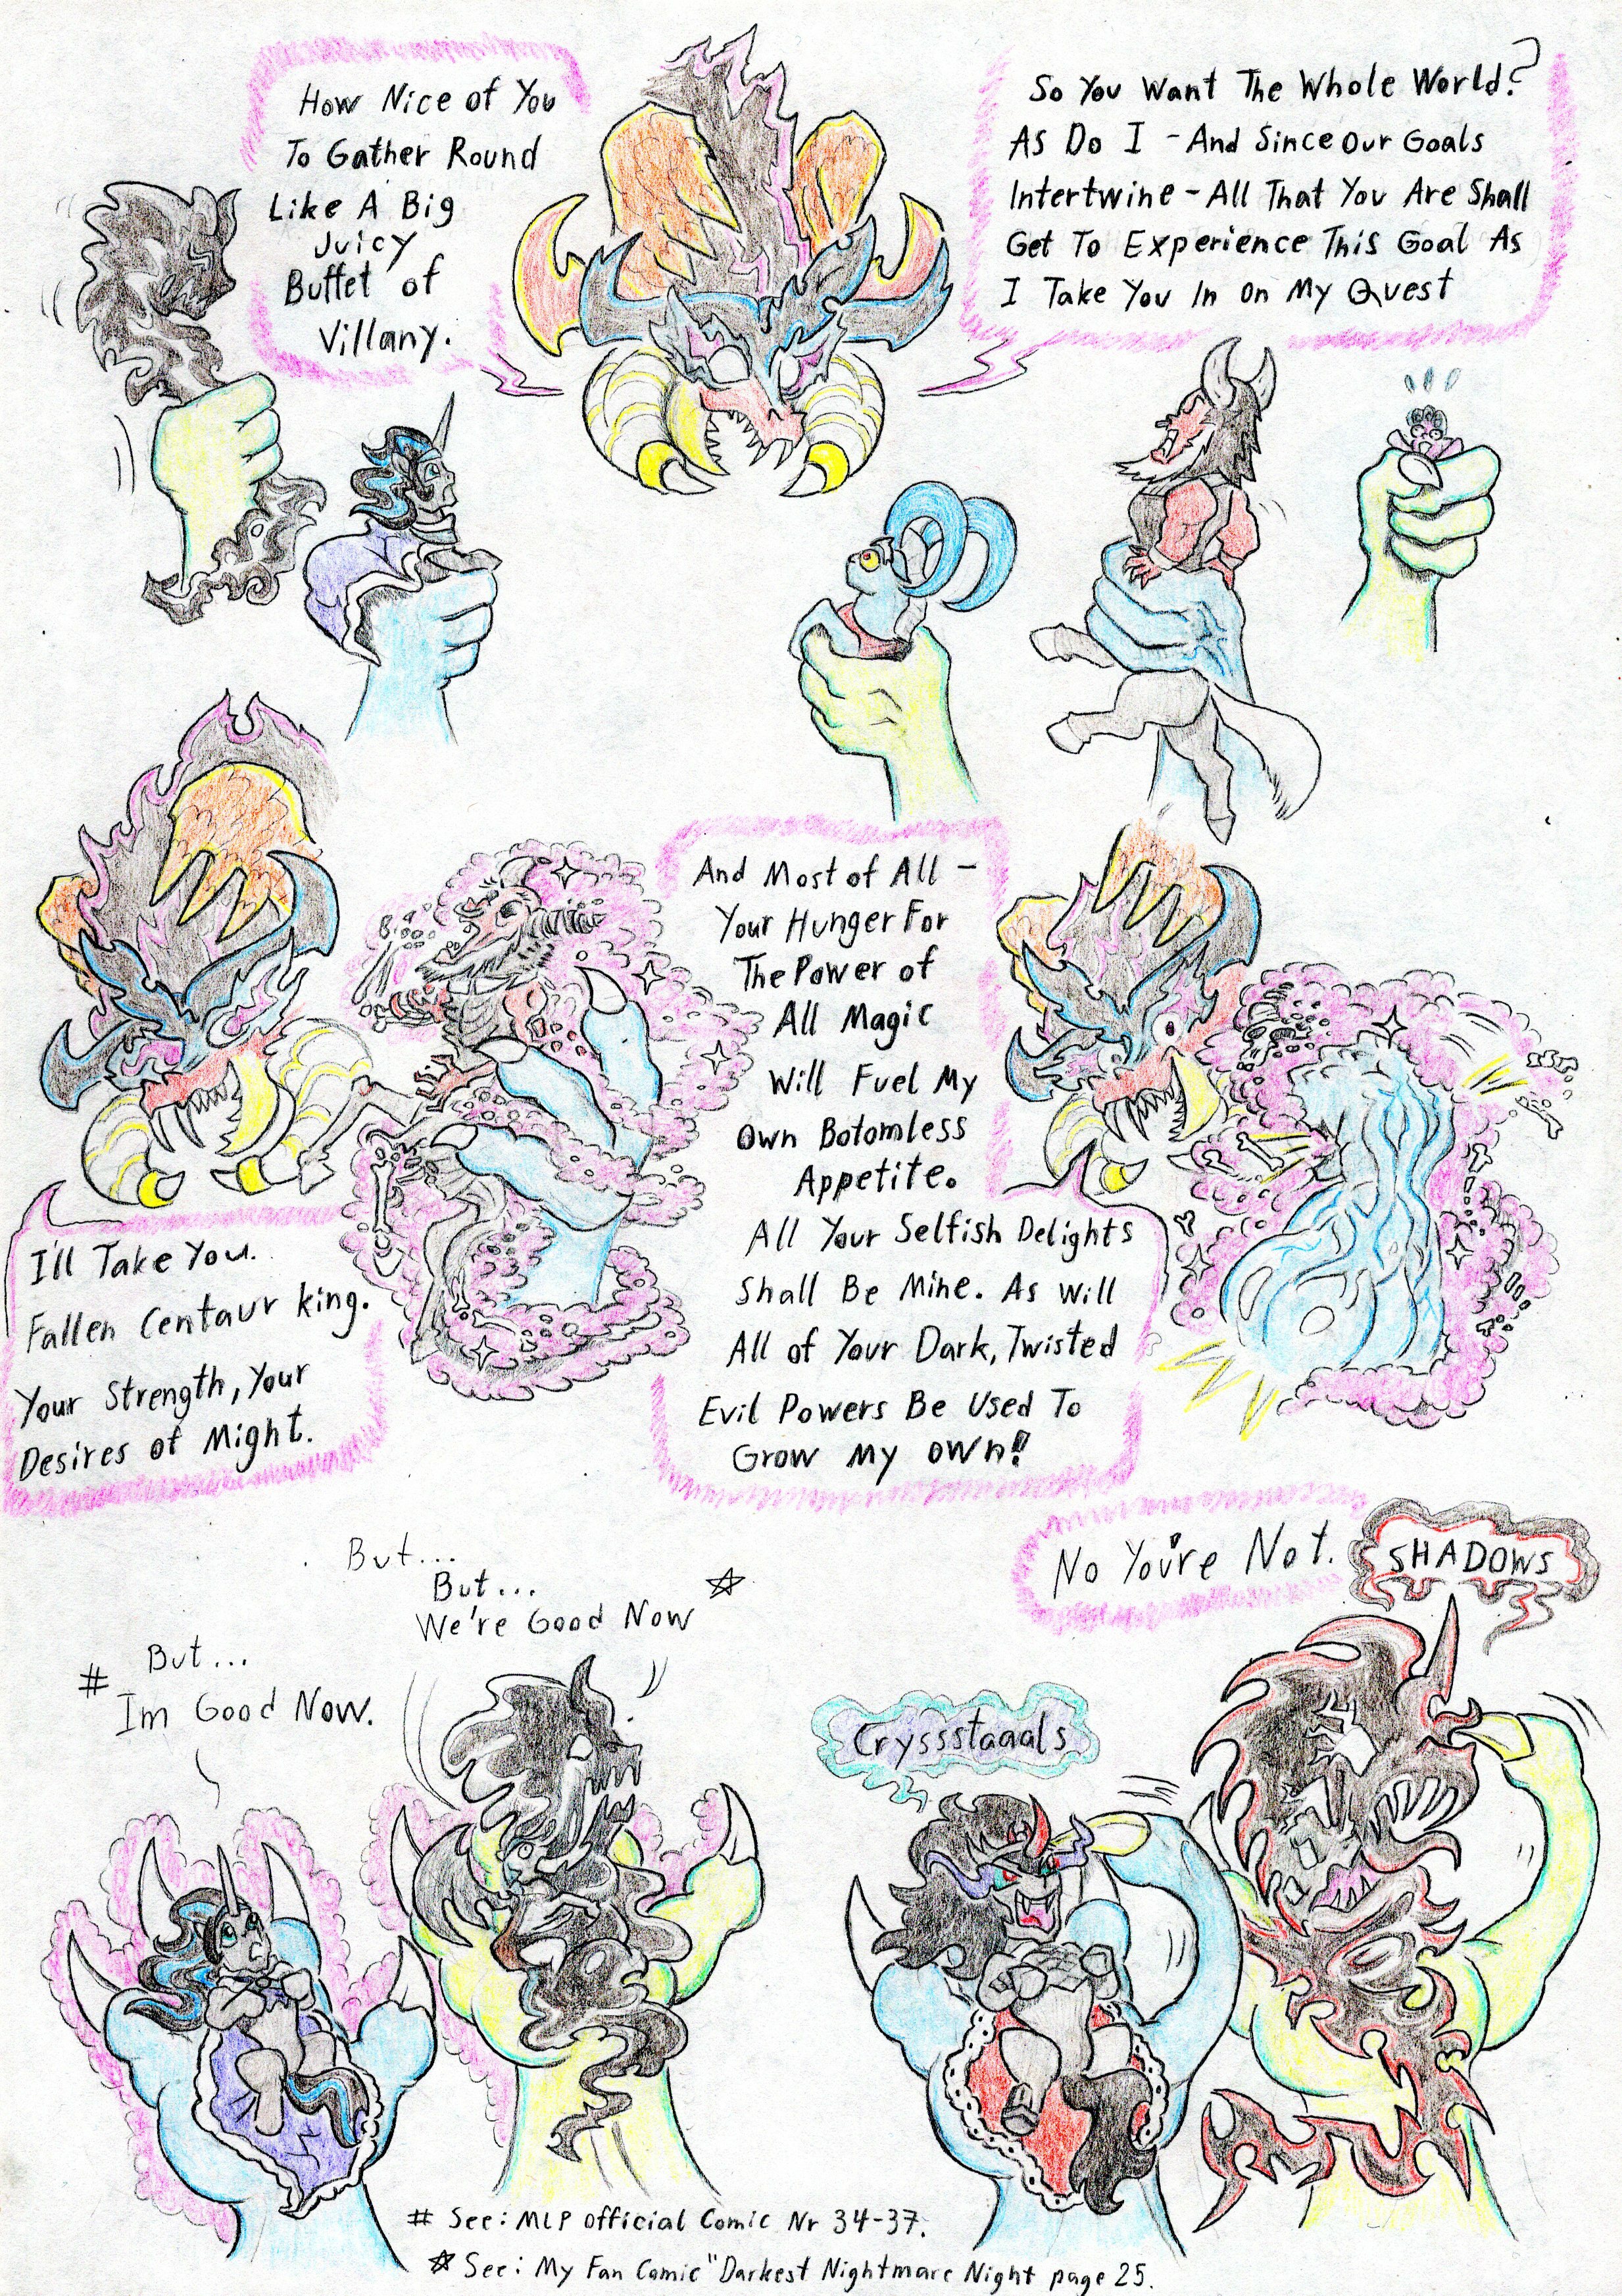 How Nice of You
To Gather Round
Like A Big
Juicy
Buffet of
Villany.
So You Want The Whole World?
As Do I - And Since Our Goals
Intertwine - All That You Are Shall
Get To Experience This Goal As
I Take You In On My Quest
I'll Take You.
Fallen Centaur king.
Your Strength, Your
Desires of Might.
And Most of All -
Your Hunger For
The Power of
All Magic
Will Fuel My
Own Botomless
Appetite.
All Your Selfish Delights
Shall Be Mine. As Will
All of Your Dark, Twisted
Evil Powers Be Used To
Grow My Own!
# But...
Im Good Now.
But...
But...
We're Good Now ☆
No You're Not.
SHADOWS
Cryssstaaals
# See: MLP official Comic Nr 34-37.
☆ See: My Fan Comic "Darkest Nightmare Night page 25.